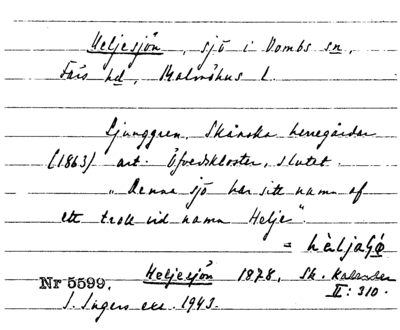 Heljesjön, sjö i Vombs sn,
Färs hd, Malmöhus l.
Ljunggren, Skånska herregårdar
(1863) art. Öfvedskloster, slutet.
"Denna sjö har sitt namn af
ett troll vid namn Helje".
= hàljaʃǿ
Heljesjön 1878, Sk. Kalender
II: 310.
Nr 5599.
I. Ingers exc. 1943.